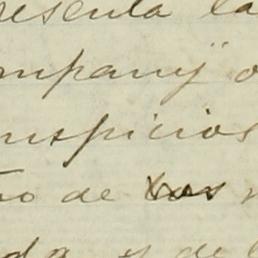 resenta la
mpany" o
uspicios
to de los
da, y de l